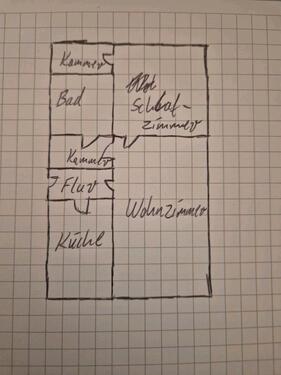 Kammer
Bad
Schlaf-
zimmer
Kammer
Flur
Wohnzimmer
Küche